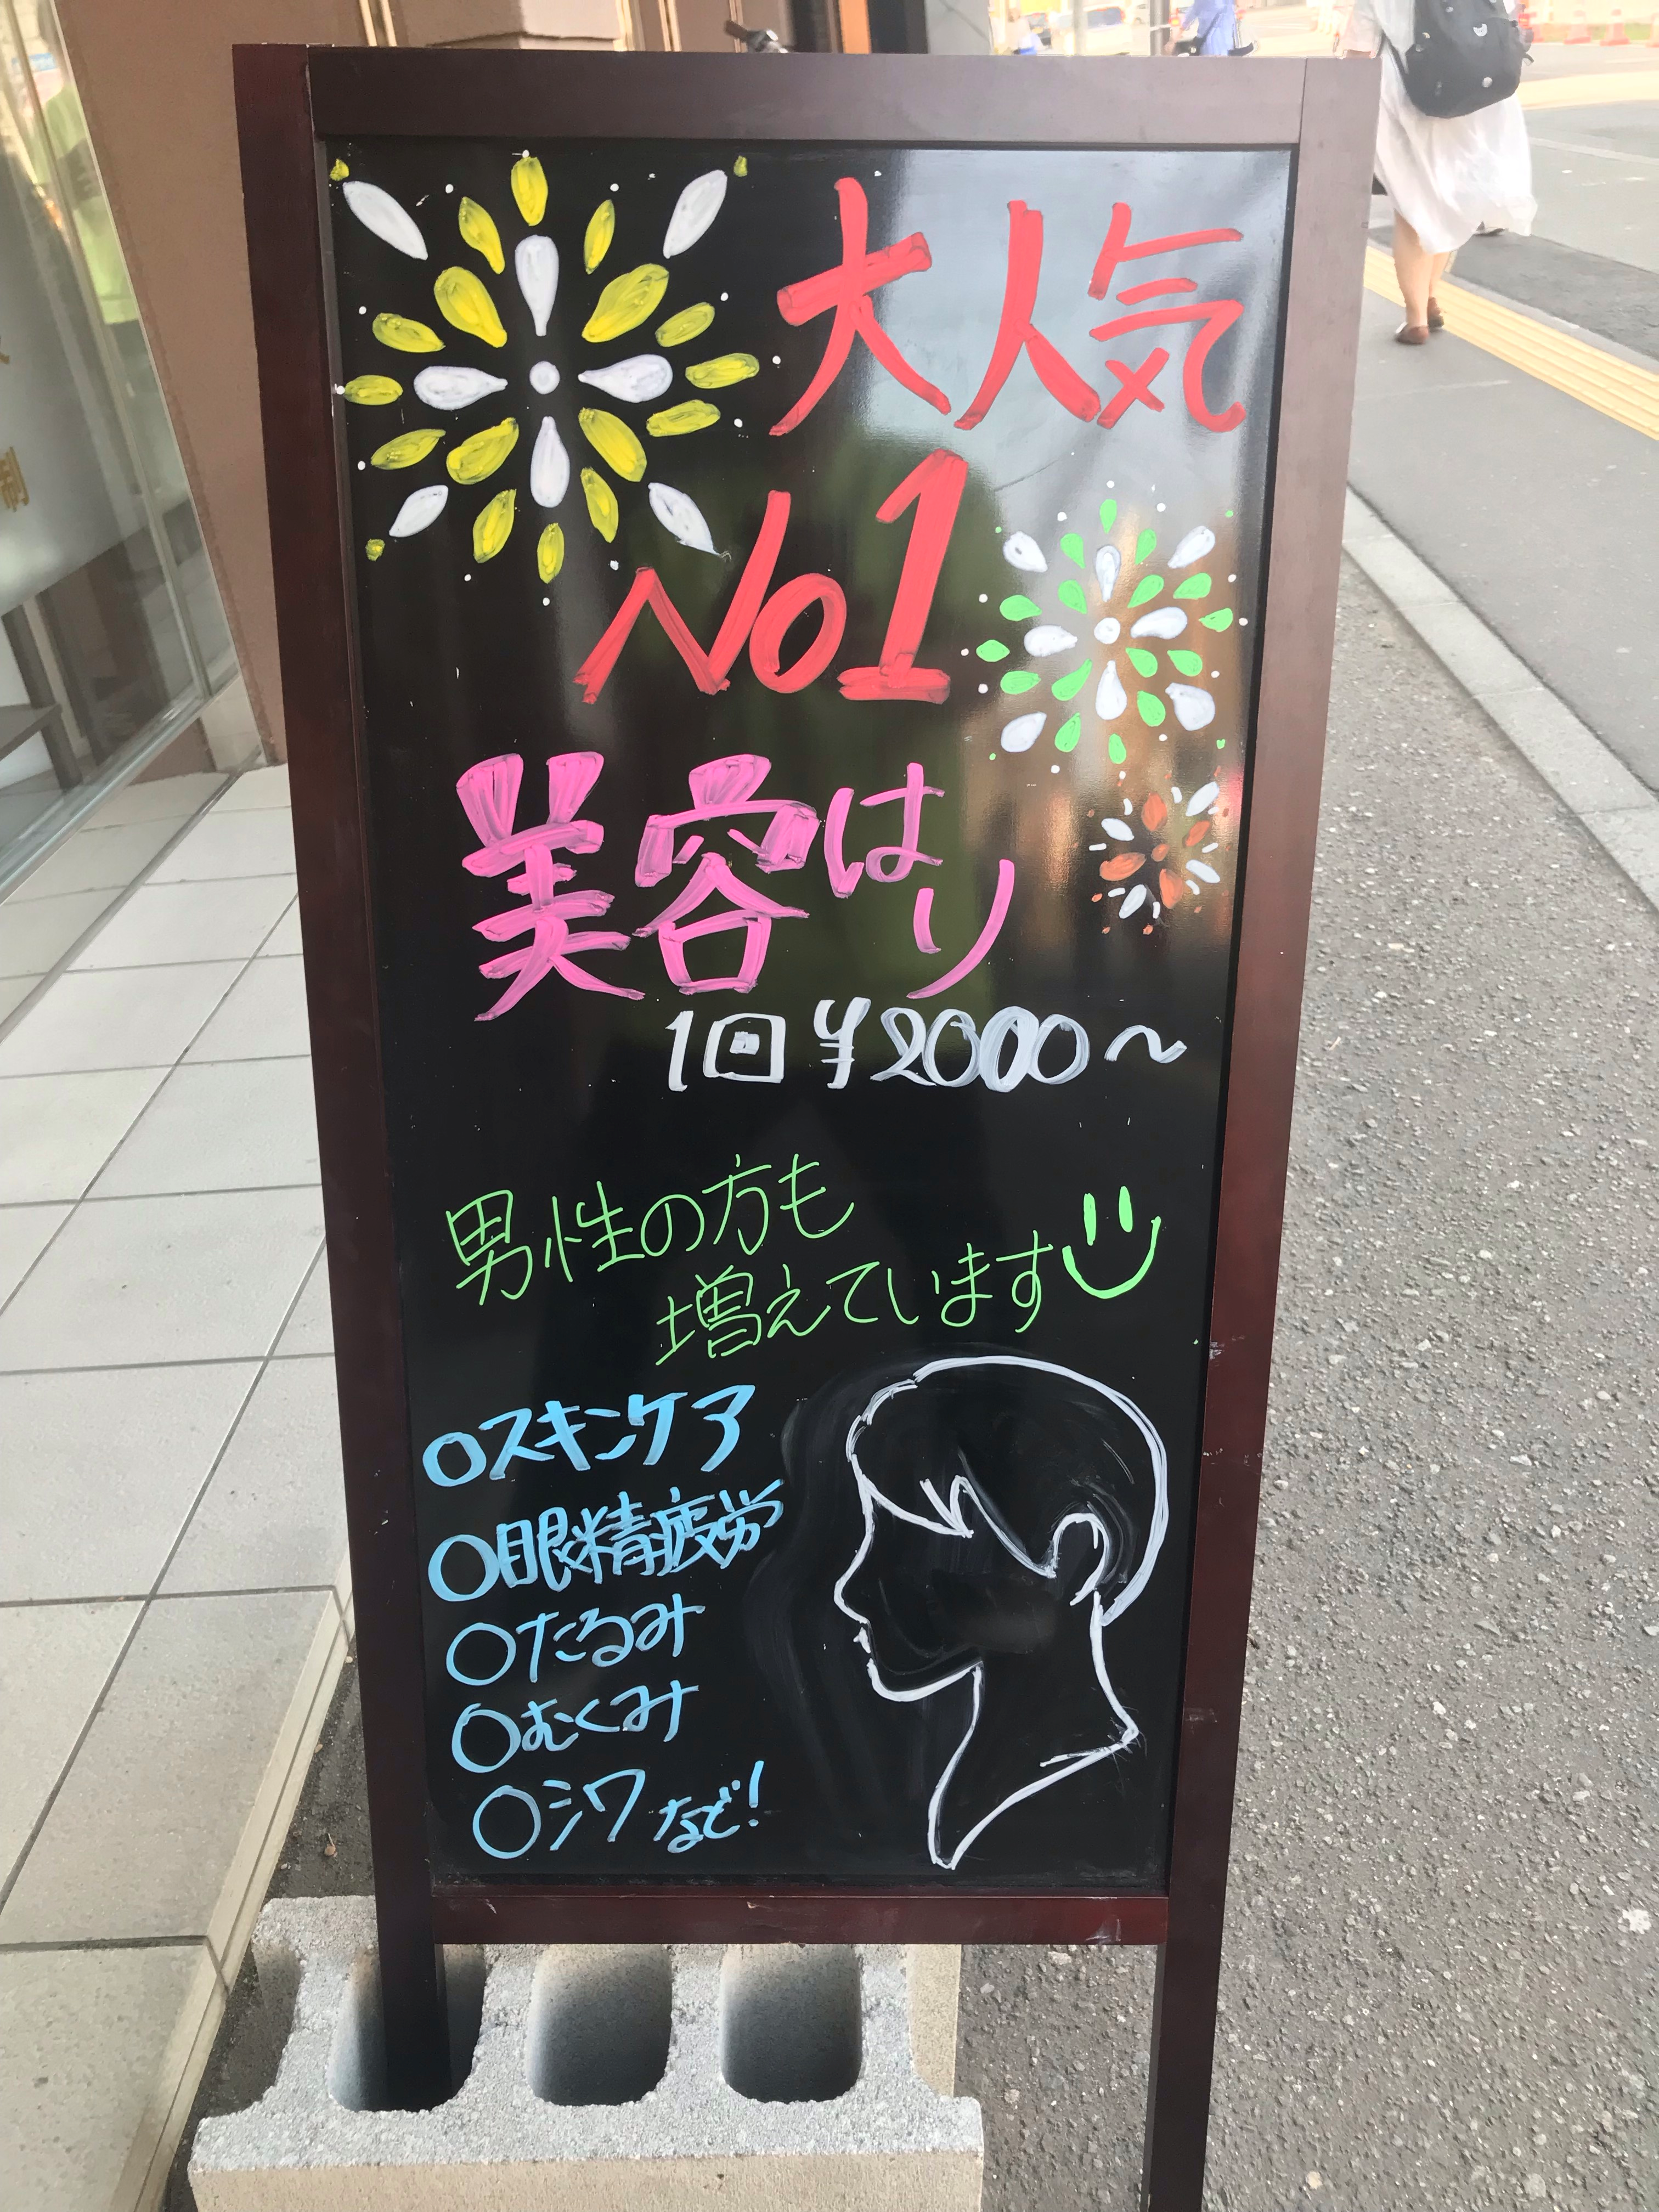 大人気
No1
美容はり
1回¥2000~
男性の方も
増えています
○スキンケア
○眼精疲労
○たるみ
○むくみ
○シワなど!
制